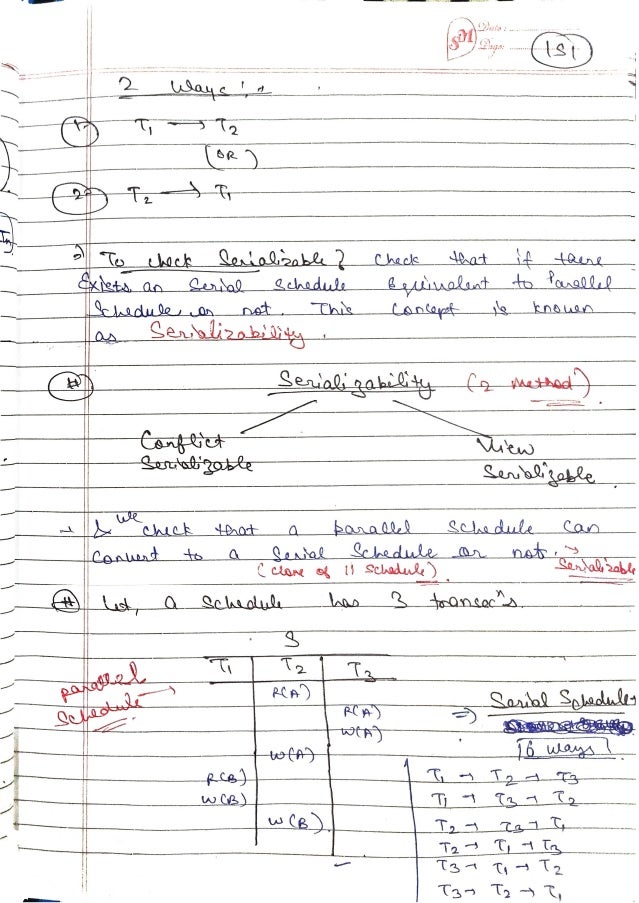 SM Date:
Page: 151
2 Ways :-
1. T₁ → T₂
(OR)
2. T₂ → T₁
⇒) To check Serializable? Check that if there
Exists an Serial Schedule Equivalent to Parallel
Schedule, or not. This Concept is known
as Serializability.
# Serializability (2 Method)
Conflict View
Serializable Serializable
→ & we check that a parallel Schedule can
Convert to a Serial Schedule or not. → Serializable
(clone of || Schedule)
# Let, a Schedule has 3 transacⁿs.
S
T₁ T₂ T₃
parallel Schedule →
R(A)
R(A)
W(A)
W(A)
R(B)
W(B)
W(B)
⇒) Serial Schedule
6 ways
T₁ → T₂ → T₃
T₁ → T₃ → T₂
T₂ → T₃ → T₁
T₂ → T₁ → T₃
T₃ → T₁ → T₂
T₃ → T₂ → T₁